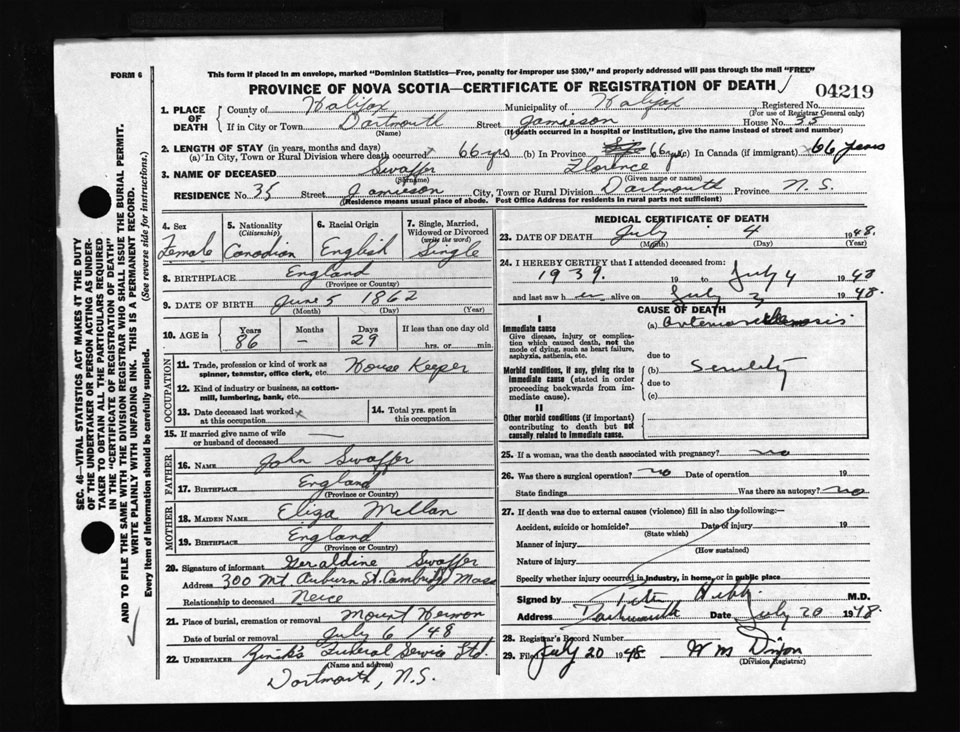 FORM 6
This form if placed in an envelope, marked "Dominion Statistics—Free, penalty for improper use $300," and properly addressed will pass through the mail "FREE"
PROVINCE OF NOVA SCOTIA—CERTIFICATE OF REGISTRATION OF DEATH
04219
1. PLACE OF DEATH
County of Halifax Municipality of Halifax Registered No.
(For use of Registrar General only)
If in City or Town Dartmouth Street Jamieson House No. 35
(Name) (If death occurred in a hospital or institution, give the name instead of street and number)
2. LENGTH OF STAY (in years, months and days)
(a) In City, Town or Rural Division where death occurred 66 yrs (b) In Province 66 yrs (c) In Canada (if immigrant) 66 years
3. NAME OF DECEASED Swaffer Florence
(Surname) (Given name or names)
RESIDENCE No. 35 Street Jamieson City, Town or Rural Division Dartmouth Province N.S.
(Residence means usual place of abode. Post Office Address for residents in rural parts not sufficient)
4. Sex Female
5. Nationality (Citizenship) Canadian
6. Racial Origin English
7. Single, Married, Widowed or Divorced (write the word) Single
8. BIRTHPLACE England
(Province or Country)
9. DATE OF BIRTH June 5 1862
(Month) (Day) (Year)
10. AGE in Years 86 Months — Days 29 If less than one day old hrs. or min.
OCCUPATION
11. Trade, profession or kind of work as spinner, teamster, office clerk, etc. House Keeper
12. Kind of industry or business, as cotton-mill, lumbering, bank, etc.
13. Date deceased last worked at this occupation
14. Total yrs. spent in this occupation
15. If married give name of wife or husband of deceased —
FATHER
16. NAME John Swaffer
17. BIRTHPLACE England
(Province or Country)
MOTHER
18. MAIDEN NAME Eliza
19. BIRTHPLACE England
(Province or Country)
20. Signature of informant Geraldine Swaffer
Address 300 Mt. Auburn St. Cambridg Mass
Relationship to deceased Neice
21. Place of burial, cremation or removal Mount Hermon
Date of burial or removal July 6 /48
22. UNDERTAKER Zink's Funeral Service Ltd.
(Name and address)
Dartmouth, N.S.
MEDICAL CERTIFICATE OF DEATH
23. DATE OF DEATH July 4 1948.
(Month) (Day) (Year)
24. I HEREBY CERTIFY that I attended deceased from:
1939. 19 to July 4 1948
and last saw her alive on July 3 1948.
CAUSE OF DEATH
I
Immediate cause
Give disease, injury or complication which caused death, not the mode of dying, such as heart failure, asphyxia, asthenia, etc.
(a) Arteriosclerosis
due to
Morbid conditions, if any, giving rise to immediate cause (stated in order proceeding backwards from immediate cause).
(b) Senility
due to
(c)
II
Other morbid conditions (if important) contributing to death but not causally related to immediate cause.
25. If a woman, was the death associated with pregnancy? no
26. Was there a surgical operation? no Date of operation 19
State findings Was there an autopsy? no
27. If death was due to external causes (violence) fill in also the following:—
Accident, suicide or homicide? Date of injury 19
(State which)
Manner of injury
(How sustained)
Nature of injury
Specify whether injury occurred in industry, in home, or in public place
Signed by M.D.
Address Dartmouth Date July 20 1948
28. Registrar's Record Number
29. Filed July 20 1948 W M Dixon
(Division Registrar)
SEC. 46—VITAL STATISTICS ACT MAKES IT THE DUTY
OF THE UNDERTAKER OR PERSON ACTING AS UNDER-
TAKER TO OBTAIN ALL THE PARTICULARS REQUIRED
IN THE "CERTIFICATE OF REGISTRATION OF DEATH"
AND TO FILE THE SAME WITH THE DIVISION REGISTRAR WHO SHALL ISSUE THE BURIAL PERMIT.
WRITE PLAINLY WITH UNFADING INK. THIS IS A PERMANENT RECORD.
Every item of information should be carefully supplied. (See reverse side for instructions.)